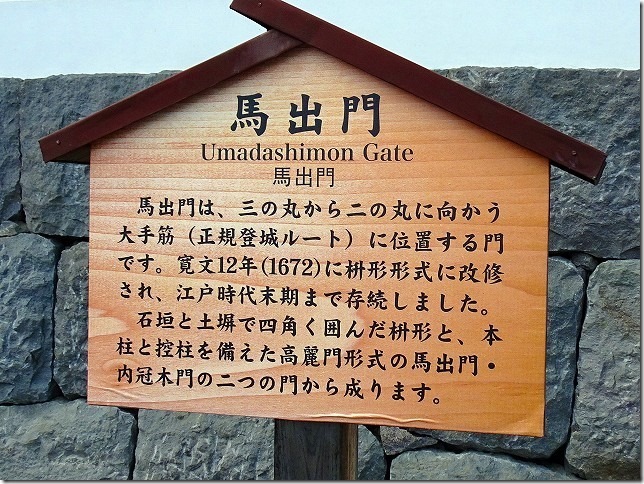 馬出門
Umadashimon Gate
馬出門
馬出門は、三の丸から二の丸に向かう
大手筋（正規登城ルート）に位置する門
です。寛文12年(1672)に枡形形式に改修
され、江戸時代末期まで存続しました。
石垣と土塀で四角く囲んだ枡形と、本
柱と控柱を備えた高麗門形式の馬出門・
内冠木門の二つの門から成ります。